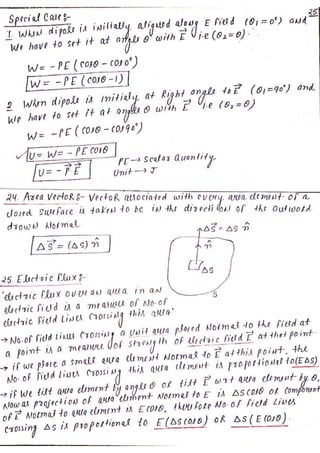 25
Special Cases-
1. When dipole is initially aligned along E field (θ1 = 0°) and
We have to set it at angle θ with E⃗ i.e (θ2 = θ).
W = - PE (cosθ - cos0°)
W = - PE (cosθ - 1)
2 When dipole is initialy at Right angle to E⃗ (θ1 = 90°) and
We have to set it at angle θ with E⃗ i.e (θ2 = θ)
W = - PE (cosθ - cos90°)
U = W = - PE cosθ
U = - P⃗ E⃗
PE → Scalar Quantity
Unit → J
24. Area Vectors- Vector associated with every area element of a
closed surface is taken to be in the direction of the outword
drown Normal
ΔS⃗ = (ΔS) n̂
ΔS⃗ = ΔS n̂
n̂
ΔS
S
25 Electric flux:-
'electric flux over an area in an
electric field is a measure of No. of
electric field Lines crossing this area'
→ No. of field lines crossing a unit area placed Normal to the field at
a point is a measure of strength of electric field E⃗ at that point
→ if we place a small area element Normal to E⃗ at this point, the
No. of field lines crossing this area element is proportional to (EΔS)
→ if We tilt area element by angle θ or tilt E⃗ w.r.t area element by θ,
Now as projection of area element Normal to E is ΔS cosθ or component
of E⃗ Normal to area element is E cosθ, therefore No of field lines
crossing ΔS is proportional to E(ΔS cosθ) or ΔS (E cosθ).